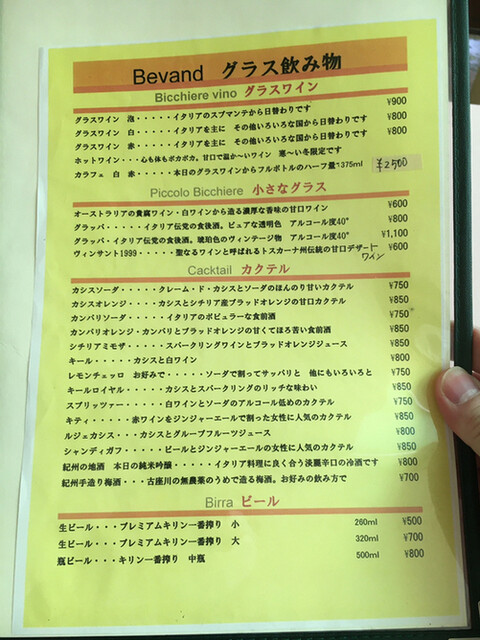 Bevand グラス飲み物
Bicchiere vino グラスワイン
グラスワイン 泡・・・・・イタリアのスプマンテから日替わりです ¥900
グラスワイン 白・・・・・イタリアを主に その他いろいろな国から日替わりです ¥800
グラスワイン 赤・・・・・イタリアを主に その他いろいろな国から日替わりです ¥800
ホットワイン・・・・心も体もポカポカ。甘口で温か～いワイン 寒～い冬限定です
カラフェ 白 赤・・・・・本日のグラスワインからフルボトルのハーフ量?375ml ¥2500
Piccolo Bicchiere 小さなグラス
オーストラリアの貴腐ワイン・白ワインから造る濃厚な香味の甘口ワイン ¥600
グラッパ・・イタリア伝党の食後酒。ピュアな透明色 アルコール度40° ¥800
グラッパ・イタリア伝党の食後酒。琥珀色のヴィンテージ物 アルコール度40° ¥1,100
ヴィンサント1999・・・・・聖なるワインと呼ばれるトスカーナ州伝統の甘口デザートワイン ¥600
Cacktail カクテル
カシスソーダ・・・・・クレーム・ド・カシスとソーダのほんのり甘いカクテル ¥750
カシスオレンジ・・・・カシスとシチリア産ブラッドオレンジの甘口カクテル ¥850
カンパリソーダ・・・・・イタリアのポピュラーな食前酒 ¥750
カンパリオレンジ・カンパリとブラッドオレンジの甘くてほろ苦い食前酒 ¥850
シチリアミモザ・・・・・スパークリングワインとブラッドオレンジジュース ¥850
キール・・・・・カシスと白ワイン ¥800
レモンチェッロ お好みで・・・・・ソーダで割ってサッパリと 他にもいろいろと ¥750
キールロイヤル・・・・・カシスとスパークリングのリッチな味わい ¥850
スプリッツァー・・・・・白ワインとソーダのアルコール低めのカクテル ¥750
キティ・・・・・赤ワインをジンジャーエールで割った女性に人気のカクテル ¥850
ルジェカシス・・・カシスとグループフルーツジュース ¥800
シャンディガフ・・・・・ビールとジンジャーエールの女性に人気のカクテル ¥850
紀州の地酒 本日の純米吟醸・・・・・イタリア料理に良く合う淡麗辛口の冷酒です ¥800
紀州手造り梅酒・・・古座川の無農薬のうめで造る梅酒。お好みの飲み方で ¥700
Birra ビール
生ビール・・・プレミアムキリン一番搾り 小 260ml ¥500
生ビール・・・プレミアムキリン一番搾り 大 320ml ¥700
瓶ビール・・・キリン一番搾り 中瓶 500ml ¥800